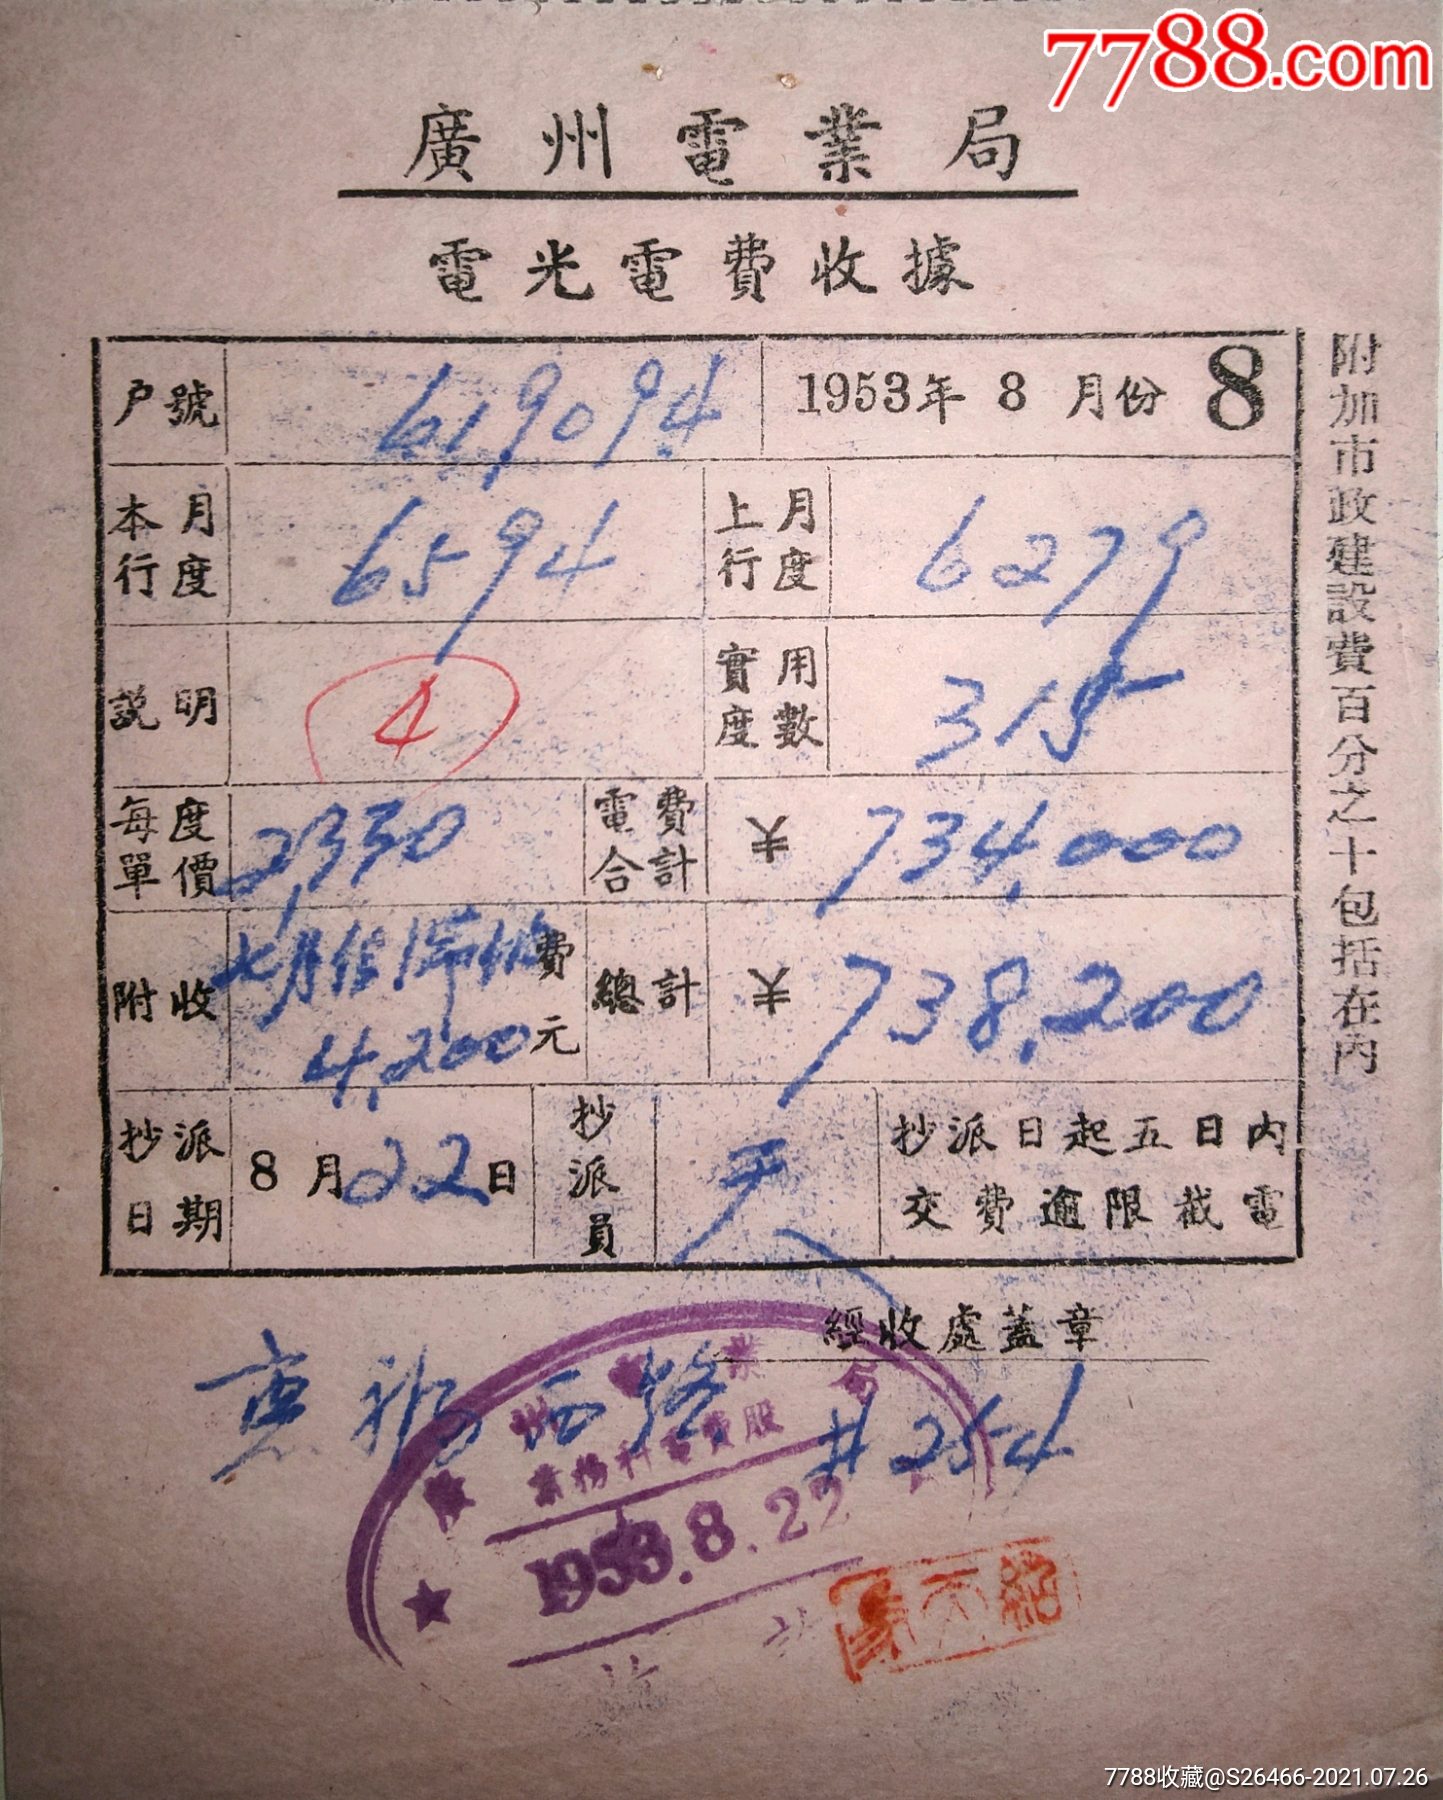 7788.com
廣州電業局
電光電費收據
戶號 619094 1953年 8 月份 8
本月行度 6594 上月行度 6279
説明 4 實用度數 315
每度單價 2,330 電費合計 ¥ 734,000
附收 七月 費 4,200 元 總計 ¥ 738,200
抄派日期 8月22日 抄派員 天 抄派日起五日內
交費逾限截電
附加市政建設費百分之十包括在內
經收處蓋章
惠福西路 #254
廣州電業局
業務科電費股
1953.8.22
7788收藏@S26466-2021.07.26